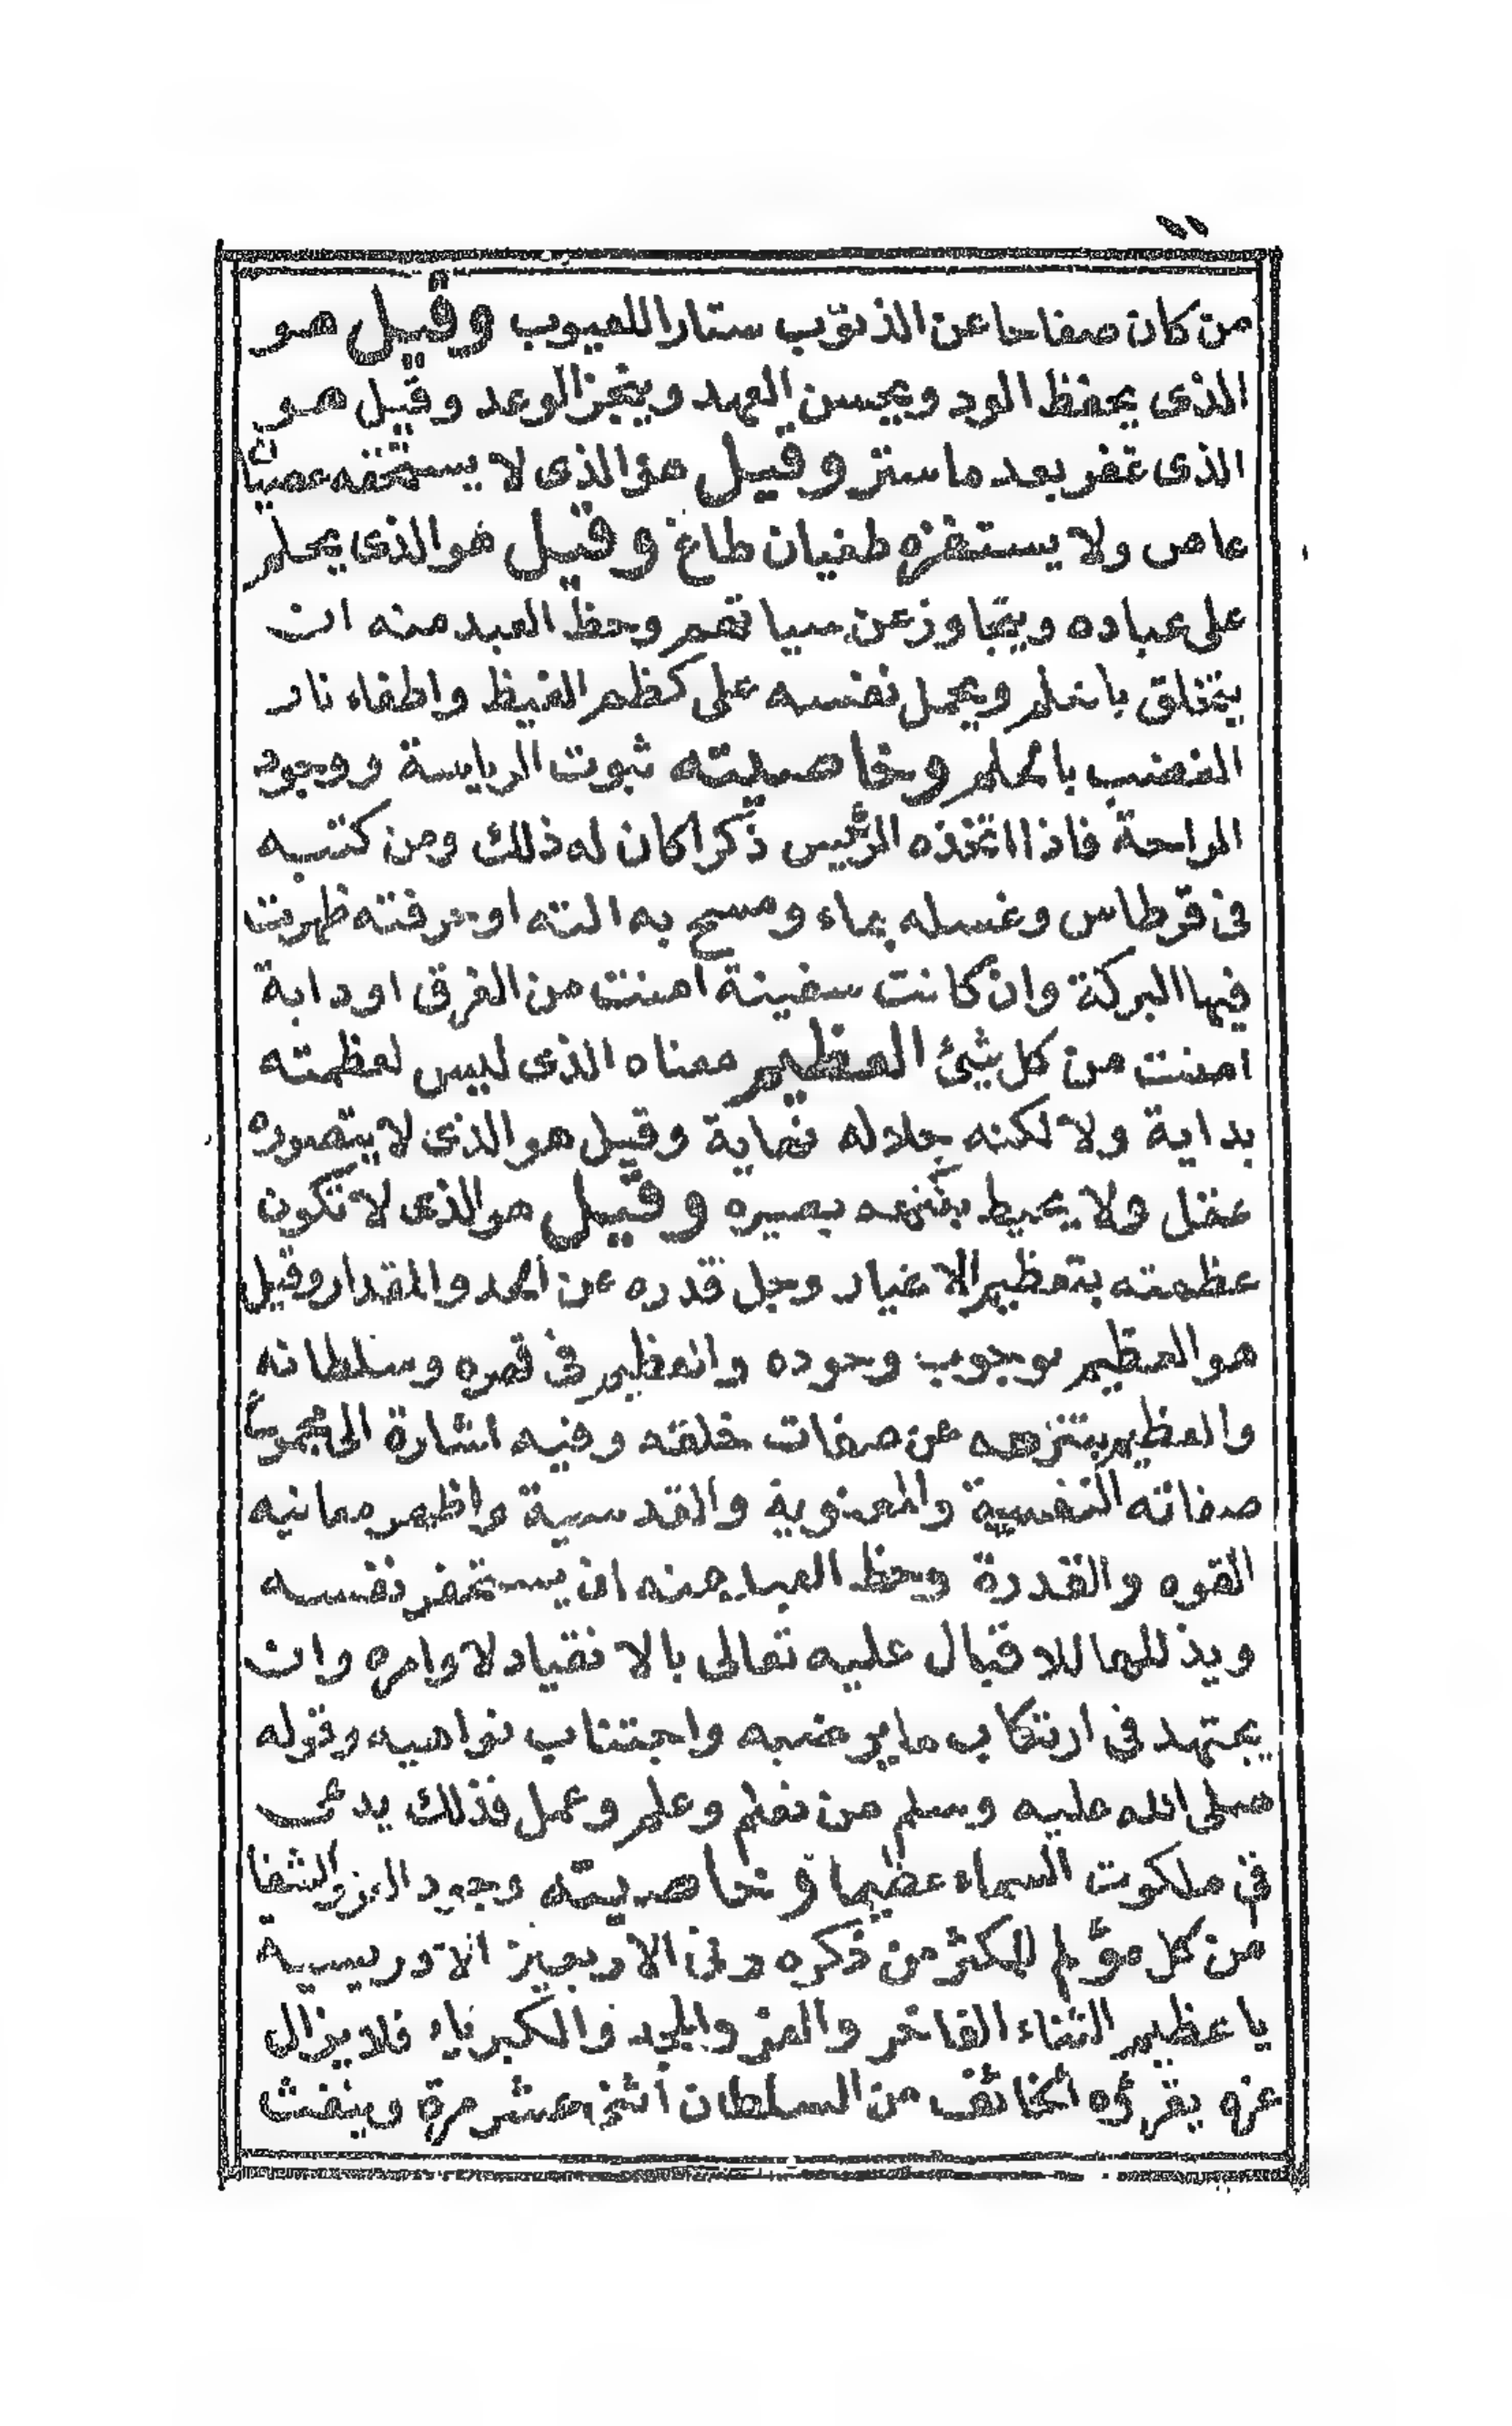 من كان صفاحا عن الذنوب ستارا للعيوب وقيل هو
الذى يحفظ الود ويحسن العهد وينجز الوعد وقيل هو
الذى غفر بعد ما ستر وقيل هو الذى لا يستخفه عصيان
عاص ولا يستفزه طغيان طاغ وقيل هو الذى يحلم
على عباده ويتجاوز عن سياتهم وحظ العبد منه ان
يتخلق بالحلم ويحمل نفسه على كظم الغيظ واطفاء نار
الغضب بالحلم وخاصيته ثبوت الرياسة ووجود
الراحة فاذا اتخذه الرئيس ذكرا كان له ذلك ومن كتبه
فى قرطاس وغسله بماء ومسح به الته او حرفته ظهرت
فيها البركة وان كانت سفينة امنت من الغرق او دابة
امنت من كل شئ العظيم معناه الذى ليس لعظمته
بداية ولا لكنه جلاله نهاية وقيل هو الذى لا يتصوره
عقل ولا يحيط بكنهه بصيره وقيل هو الذى لا تكون
عظمته بتعظيم الاغيار وجل قدره عن الحد والمقدار وقيل
هو العظيم بوجوب وجوده والعظيم فى قهره وسلطانه
والعظيم بتنزهه عن صفات خلقه وفيه اشارة الى مجموع
صفاته النفسية والمعنوية والقدسية واظهر معانيه
القوه والقدرة وحظ العبد منه ان يستحقر نفسه
ويذللها للاقبال عليه تعالى بالانقياد لاوامره وان
يجتهد فى ارتكاب ما يرضيه واجتناب نواهيه وقوله
صلى الله عليه وسلم من تعلم وعلم وعمل فذلك يدعى
فى ملكوت السماء عظيما وخاصيته وجود العز والشفا
من كل مؤلم للمكثر من ذكره وفى الاربعين الادريسية
يا عظيم الثناء الفاخر والعز والمجد والكبرياء فلا يزال
عزه يقرؤه الخائف من السلطان اثنى عشر مرة وينفث